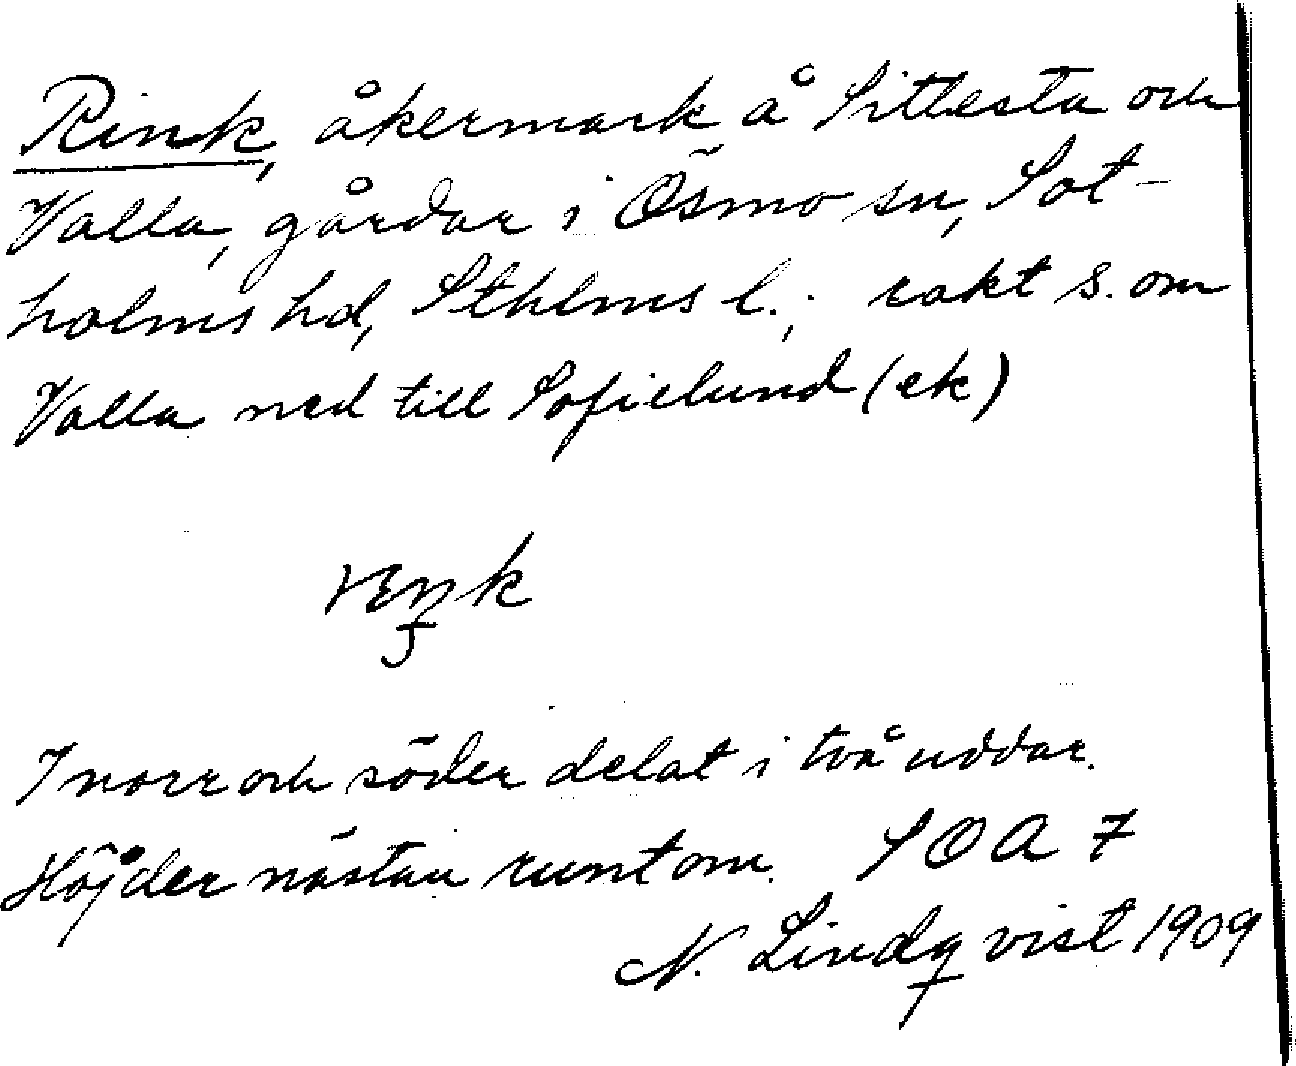 Rink, åkermark å Sittesta och
Valla, gårdar i Ösmo sn, Sot-
holms hd, Sthlms l.; rakt s. om
Valla ned till Sofielund (ek)
I norr och söder delat i två uddar.
Höjder nästan runt om. SOA 7
N. Lindqvist 1909